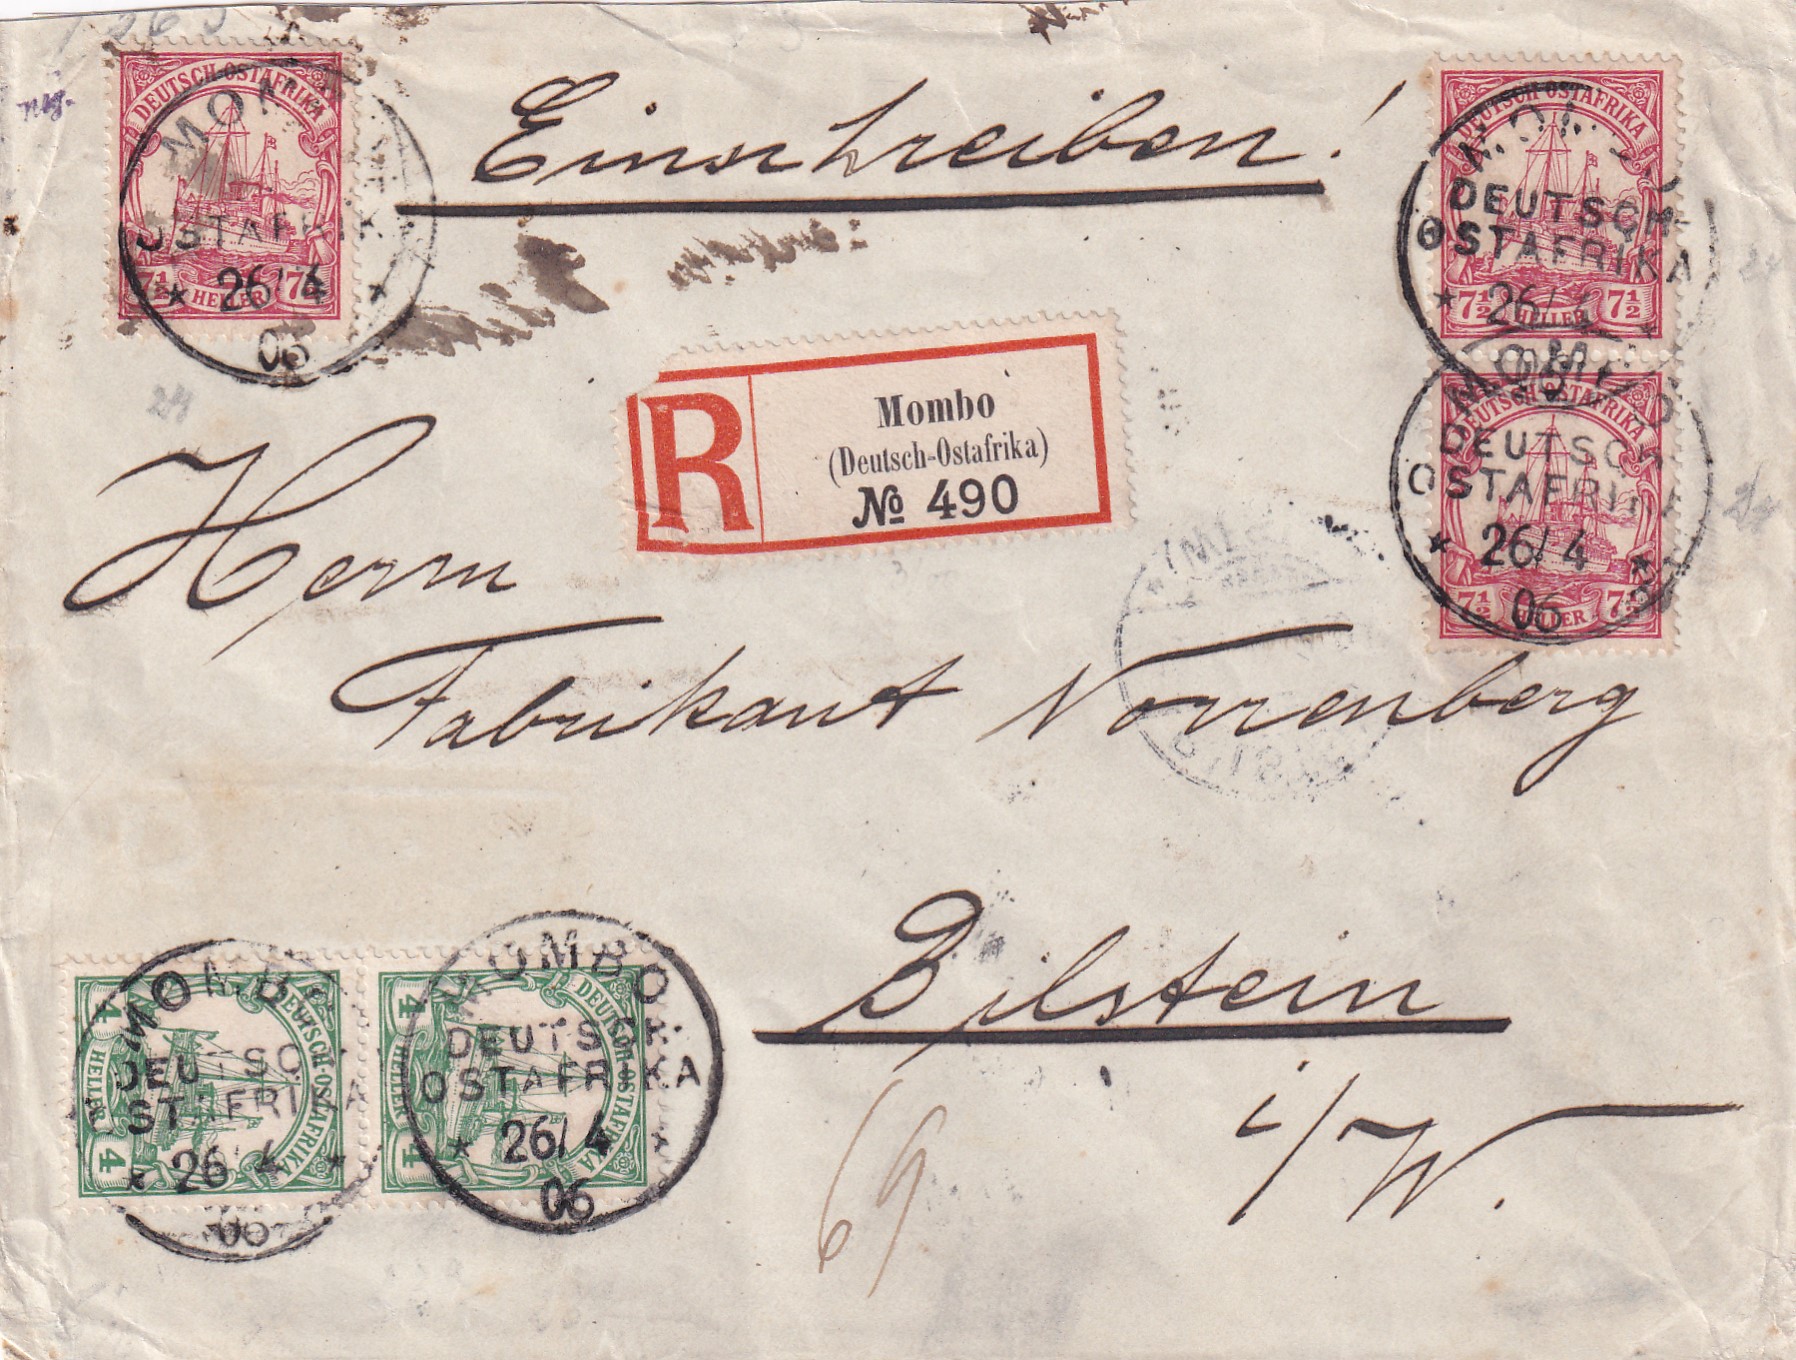 Einschreiben!
DEUTSCH-OSTAFRIKA
7½ HELLER 7½
OSTAFRIKA
26/4
06
DEUTSCH-OSTAFRIKA
7½ HELLER 7½
DEUTSCH
OSTAFRIKA
26/4
DEUTSCH-OSTAFRIKA
7½ HELLER 7½
MOMBO
DEUTSCH
OSTAFRIKA
26/4
06
R
Mombo
(Deutsch-Ostafrika)
№ 490
Herrn
Fabrikant Norrenberg
Bilstein
i/W.
69
DEUTSCH-OSTAFRIKA
4 HELLER 4
MOMBO
DEUTSCH
OSTAFRIKA
26/4
06
DEUTSCH-OSTAFRIKA
4 HELLER 4
MOMBO
DEUTSCH
OSTAFRIKA
26/4
06